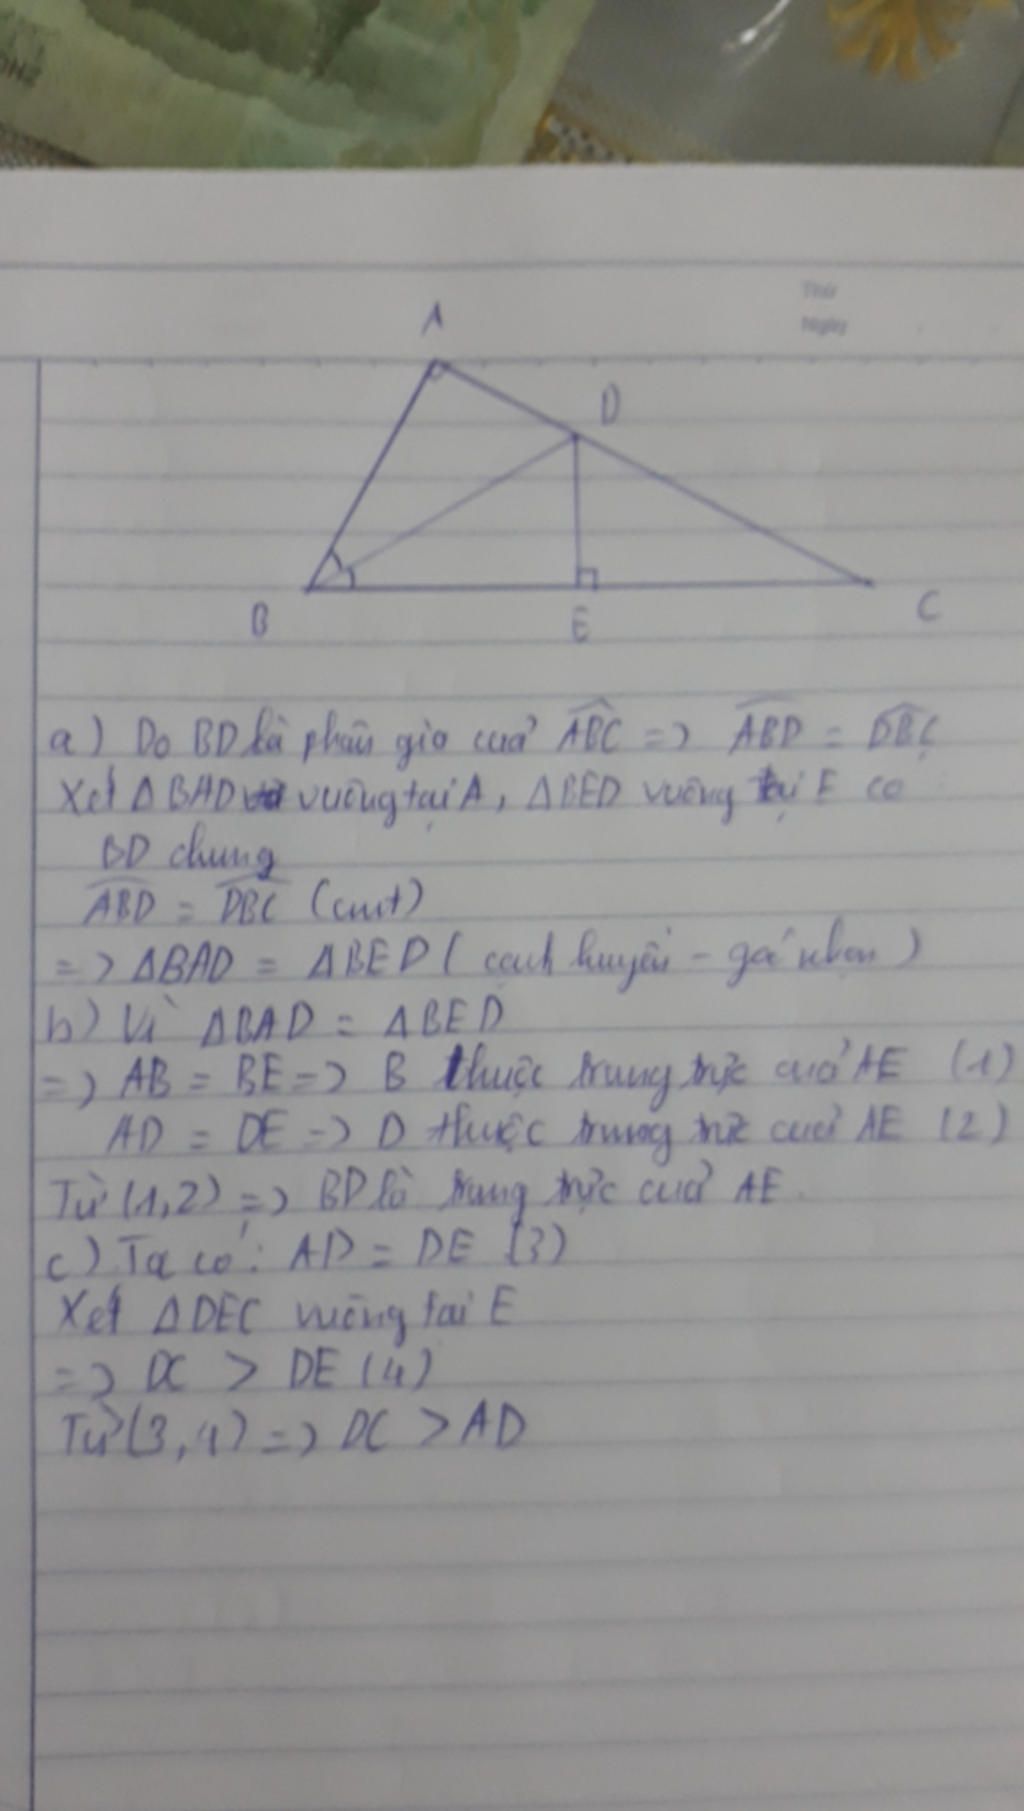 Thứ
Ngày
A
D
B
E
C
a) Do BD là phân giá cuả ABC => ABD = DBC
Xét ΔBAD vuông tại A, ΔBED vuông tại E co
BD chung
ABD = DBC (cmt)
=> ΔBAD = ΔBED ( cạnh huyền - goć nhọn )
b) Vì ΔBAD = ΔBED
=> AB = BE => B thuộc trung trực cuả AE (1)
AD = DE => D thuộc trung trực cuả AE (2)
Từ (1,2) => BD là trung trực cuả AE.
c) Ta có: AD = DE (3)
Xét ΔDEC vuông tại E
=> DC > DE (4)
Từ (3,4) => DC > AD